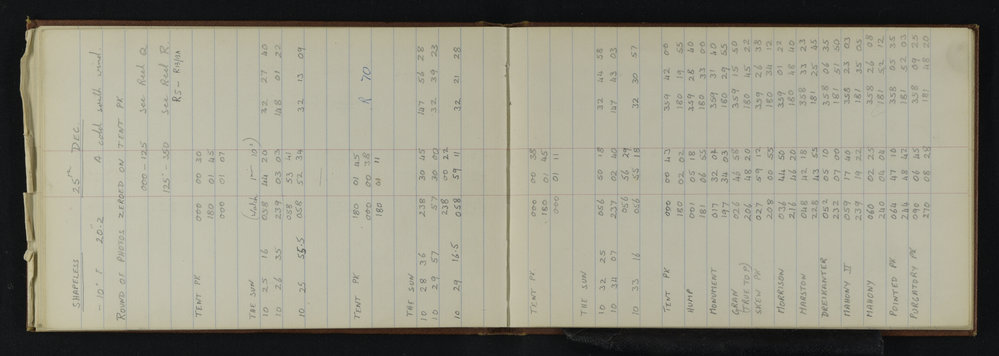 SHAPELESS 25TH DEC
-10° T 20.2 A cold south wind
ROUND OF PHOTOS ZEROED ON TENT PK
000-125 see Reel Q
125-350 see Reel R
R5 - R13/13A
TENT PK 000 00 30
180 01 45
000 01 07
THE SUN
10 25 16 058 44 20 32 27 40
10 26 35 239 03 03 148 01 22
058 53 41
10 25 55.5 058 52 34 32 13 09
TENT PK 180 01 45 R 70
000 00 38
180 01 11
THE SUN
10 28 36 238 30 45 147 56 28
10 29 57 57 30 00 32 39 23
238 00 22
10 29 16.5 058 59 11 32 21 28
TENT PK 000 00 38
180 01 45
000 01 11
THE SUN
10 32 25 056 50 18 32 44 58
10 34 07 237 02 40 147 43 03
056 56 29
10 33 16 056 55 18 32 30 57
TENT PK 000 00 43 359 42 00
180 02 02 180 19 55
HUMP 001 05 18 359 28 40
181 06 55 180 33 00
MONUMENT 017 32 359 31 40
197 34 03 180 29 55
GRAN 026 46 58 359 15 50
(TRUE TOP) 206 48 20 180 45 22
SKEW PK 027 09 12 359 26 38
208 180 34 12
MORRISON 036 44 50 359 01 22
216 46 20 180 48 40
MARSTON 048 42 18 358 33 23
228 43 181 25 45
DREIKANTER 052 05 10 358 06 35
232 07 00 181 51 50
MAHONY II 059 17 40 358 23 03
239 19 22 181 35 05
MAHONY 060 02 25 358 26 08
240 04 04 181 52 12
POINTED PK 064 47 10 358 05 35
244 48 42 181 52 03
PURGATORY PK 090 06 45 358 09 25
270 08 28 181 48 20